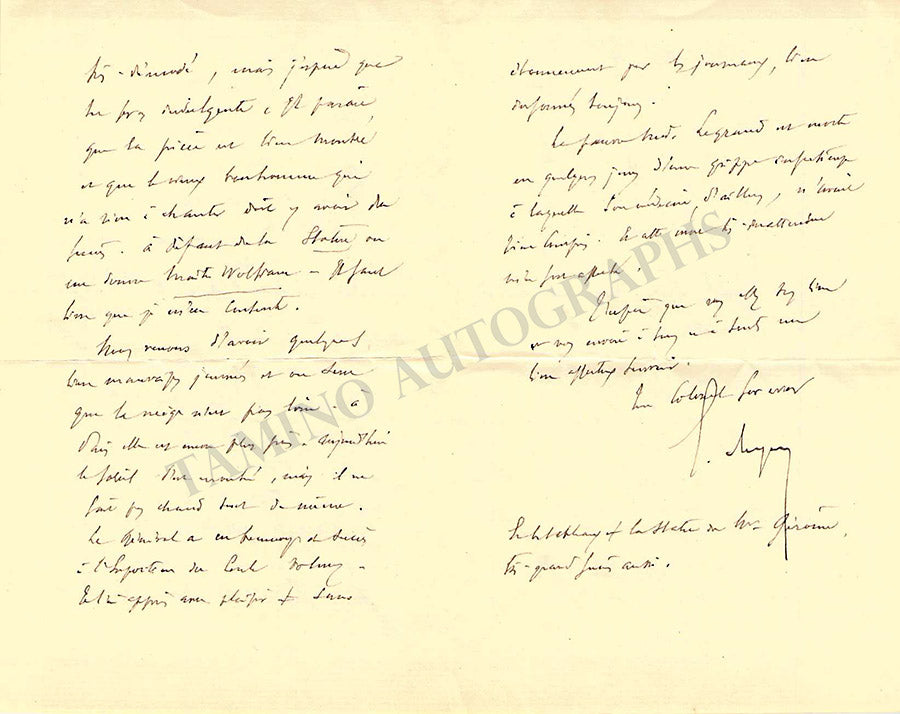 très-démodé, mais j'espère que
tu seras indulgente. Il paraît
que la pièce est bien montée
et que le vieux bonhomme qui
n'a rien à chanter doit y avoir du
succès. à défaut de la Statue on
me donne Maître Wolfram – Il faut
bien que je m'en contente.
Nous venons d'avoir quelques
bien mauvaises journées et on sent
que la neige n'est pas loin. à
Paris elle est encore plus près. aujourd'hui
le soleil s'est montré, mais il ne
fait pas chaud tout de même.
Le Général a eu beaucoup de succès
à l'Exposition du Cercle Volney –
Je l'ai appris avec plaisir & sans
étonnement par les journaux, bien
informés toujours.
Le pauvre Mad. Legrand est morte
en quelques jours d'une grippe infectieuse
à laquelle son médecin, d'ailleurs, n'avait
rien compris. Et cette mort très-inattendue
m'a fort affecté.
J'espère que vous allez tous bien
et vous envoie à tous et à toutes mon
bien affectueux souvenir.
Ton Colonel for ever
E. Reyer
& la Statue de Mr Gérôme,
très-grand succès aussi.
TAMINO AUTOGRAPHS